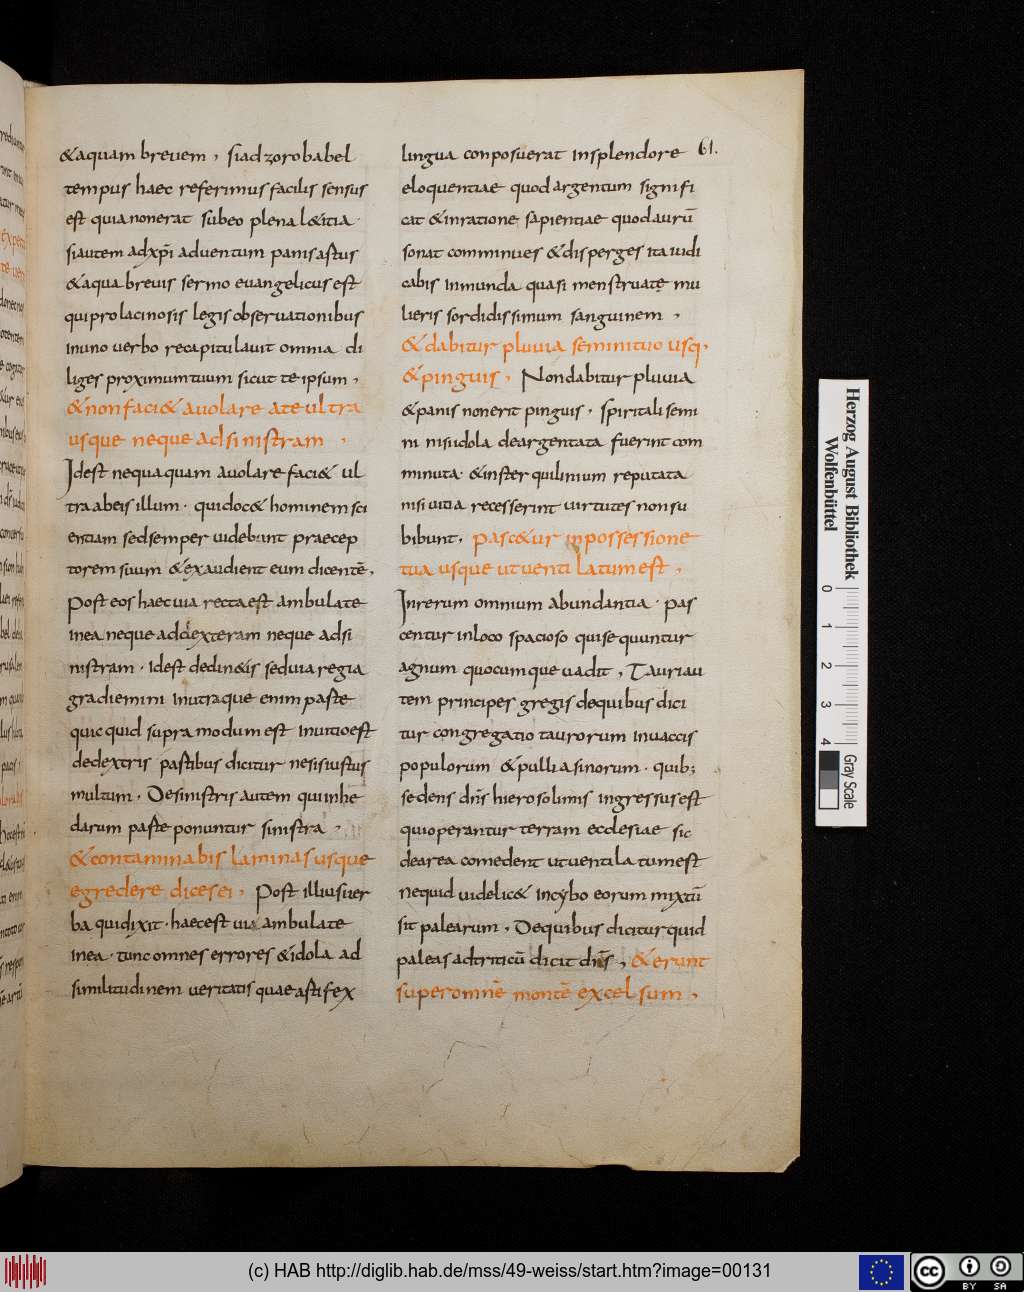 &aquam breuem, siadzorobabel
tempus haec referimus facilis sensus
est quianonerat subeo plenal&itia.
siautem adxp̄i aduentum panisastus
&aqua breuis sermo euangelicus est
quiprolacinosis legis obseruationibus
inuno uerbo recapitulauit omnia di
liges proximumtuum sicut te ipsum,
&nonfaci& auolare ate ultra
usque neque adsinistram,
Idest nequaquam auolarefaci& ul
traabeis illum. quidoc& hominem sci
entiam sedsemper uidebunt praecep
torem suum &exaudient eum dicentē,
Post eos haecuia rectaest ambulate
inea neque addexteram neque adsi
nistram. Idest dedin&is seduiaregia
gradiemini inutraque enim paste
quicquid supra modumest inuitioest
dedextris pastibus dicitur nesisiustus
multum. Desinistris autem quiinhe
darum paste ponuntur sinistra,
&contaminabis laminas usque
egredere dicesei, Post illiusuer
ba quidixit. haecest uia ambulate
inea. tuncomnes errores &idola ad
similitudinem ueritatis quaeastifex
lingua conposuerat insplendore 61.
eloquentiae quod argentum signifi
cat &inratione sapientiae quodaurū
sonat comminues &disperges ita iudi
cabis inmunda quasi menstruate mu
lieris sordidissimum sanguinem,
&dabitur pluuia seminituo usq,
&pinguis, Nondabitur pluuia
&panis nonerit pinguis. spiritali semi
ni nisiidola deargentata fuerint com
minuta. &inster quilinium reputata
nisi uitia recesserint uirtutes nonsu
bibunt. pasc&ur inpossessione
tua usque utuenti latumest,
Inrerum omnium abundantia. pas
centur inloco spacioso quisequuntur
agnum quocumque uadit, Tauriau
tem principes gregis dequibus dici
tur congregatio taurorum inuaccis
populorum &pulli asinorum. quib;
sedens dn̄s hierosolimis ingressusest
quioperantur terram ecclesiae sic
dearea comedent utuenti latumest
nequid uidelic& incybo eorum mixtū
sit palearum, Dequibus diciturquid
paleas adtriticū dicit dn̄s, &erunt
superomnē montē excelsum,
Herzog August Bibliothek
Wolfenbüttel
0 1 2 3 4
Gray Scale
(c) HAB http://diglib.hab.de/mss/49-weiss/start.htm?image=00131
cc BY SA